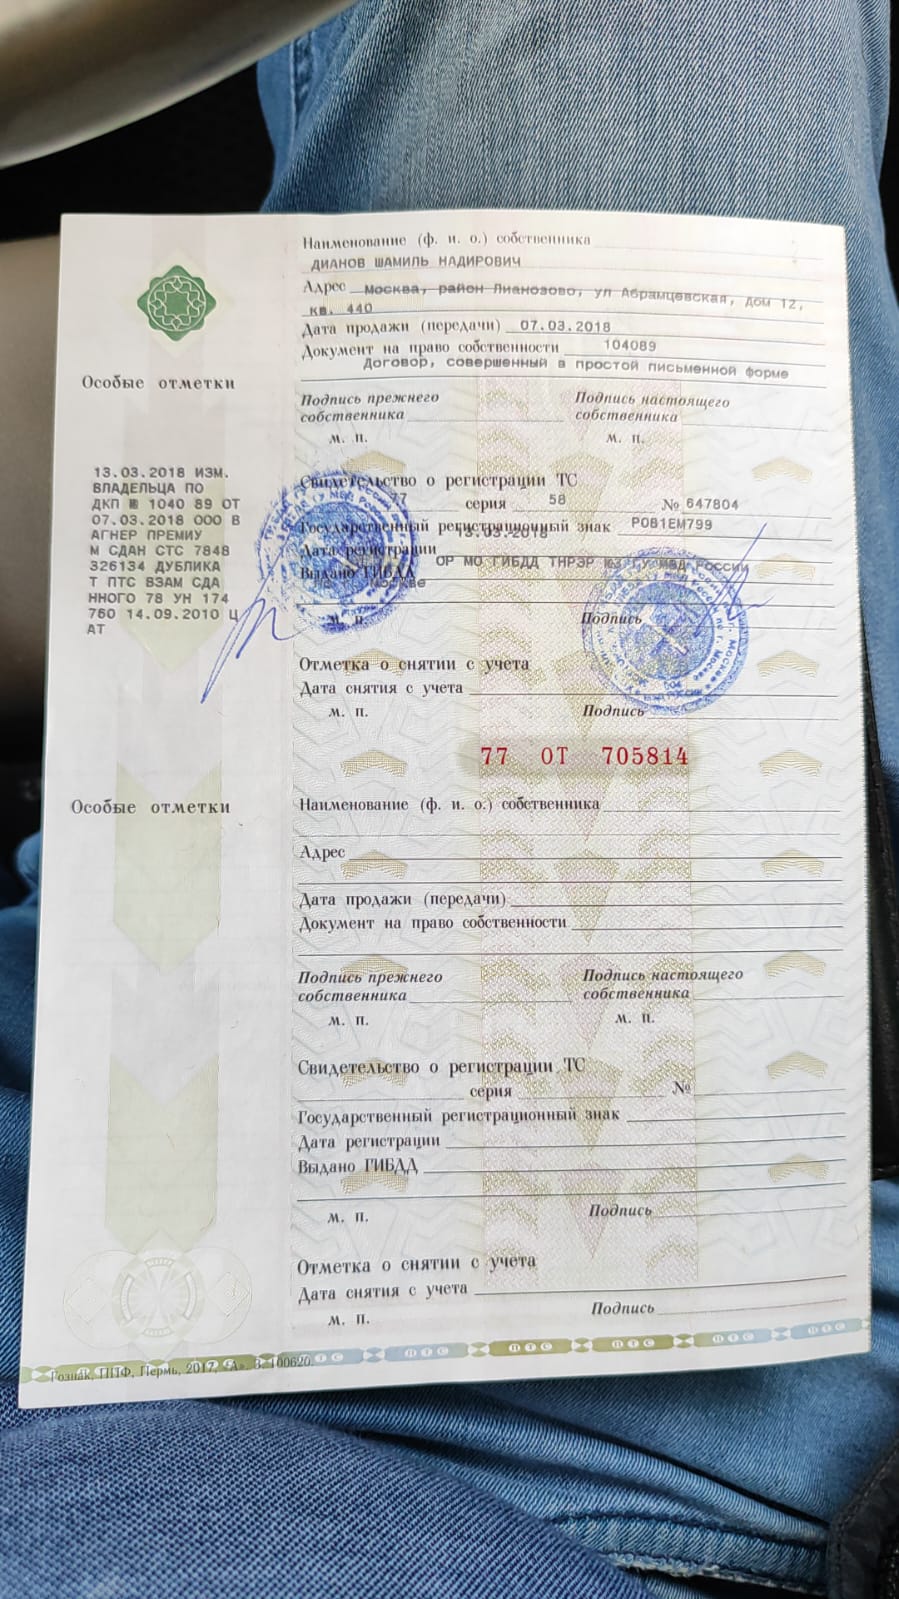 Наименование (ф. и. о.) собственника
ДИАНОВ ШАМИЛЬ НАДИРОВИЧ
Адрес Москва, район Лианозово, ул Абрамцевская, дом 12,
кв. 440
Дата продажи (передачи) 07.03.2018
Документ на право собственности 104089
Договор, совершенный в простой письменной форме
Подпись прежнего собственника
Подпись настоящего собственника
м. п.
м. п.
Особые отметки
13.03.2018 ИЗМ.
ВЛАДЕЛЬЦА ПО
ДКП № 1040 89 ОТ
07.03.2018 ООО В
АГНЕР ПРЕМИУ
М СДАН СТС 7848
326134 ДУБЛИКА
Т ПТС ВЗАМ СДА
ННОГО 78 УН 174
760 14.09.2010 Ц
АТ
Свидетельство о регистрации ТС
77 серия 58 № 647804
Государственный регистрационный знак Р081ЕМ799
Дата регистрации 13.03.2018
Выдано ГИБДД ОР МО ГИБДД ТНРЭР №3 ГУ МВД РОССИИ
Москве
м. п.
Подпись
Отметка о снятии с учета
Дата снятия с учета
м. п.
Подпись
77 ОТ 705814
Особые отметки
Наименование (ф. и. о.) собственника
Адрес
Дата продажи (передачи)
Документ на право собственности
Подпись прежнего собственника
Подпись настоящего собственника
м. п.
м. п.
Свидетельство о регистрации ТС
серия №
Государственный регистрационный знак
Дата регистрации
Выдано ГИБДД
м. п.
Подпись
Отметка о снятии с учета
Дата снятия с учета
м. п.
Подпись
ПТС ПТС ПТС ПТС ПТС ПТС ПТС
Гознак, ППФ, Пермь, 2017, «А». В. 100620.